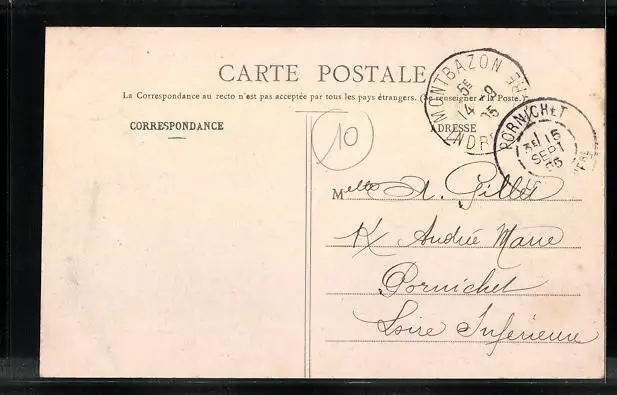 CARTE POSTALE
La Correspondance au recto n'est pas acceptée par tous les pays étrangers. (Se renseigner à la Poste.)
CORRESPONDANCE
ADRESSE
MONTBAZON
5E
14 -9
05
INDRE
PORNICHET
3E 15
SEPT
05
10
Melle A. Gillet
Andrée Marie
Pornichet
Loire Inférieure